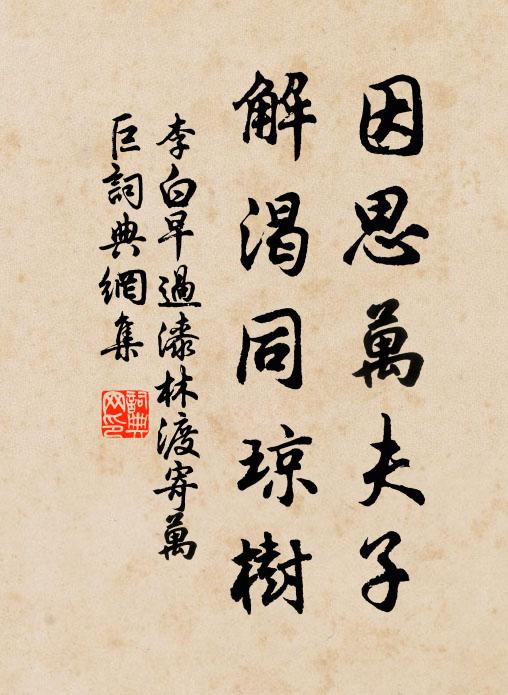 因思萬夫子
解渴同琼樹
李白早過漆林渡寄萬
巨詞典網集
詞典
网印